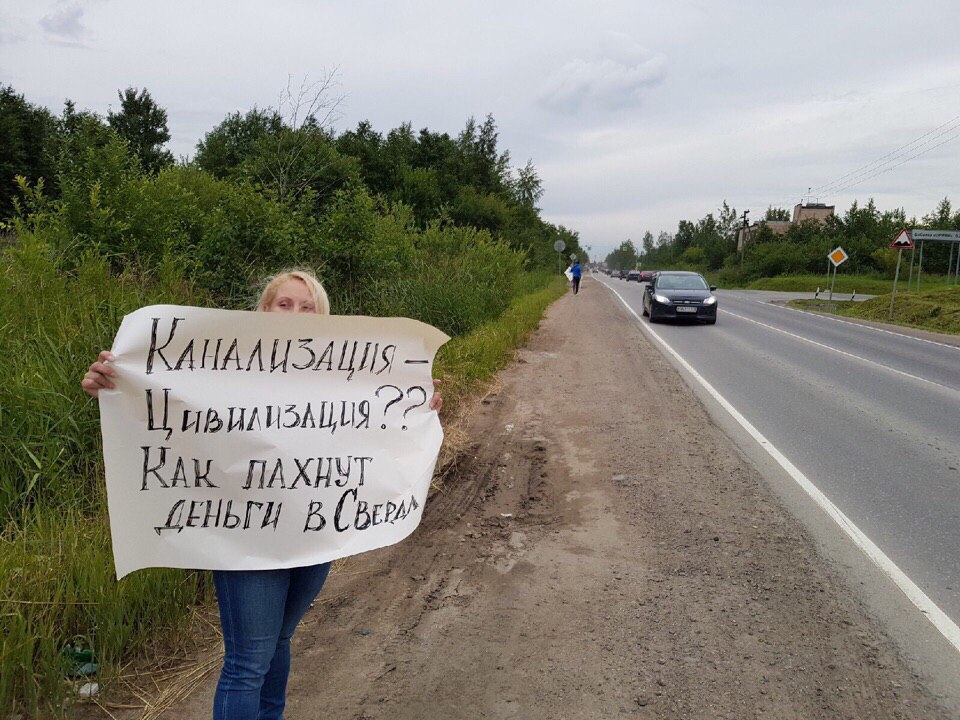 Канализация –
Цивилизация??
Как пахнут
деньги в Свердл